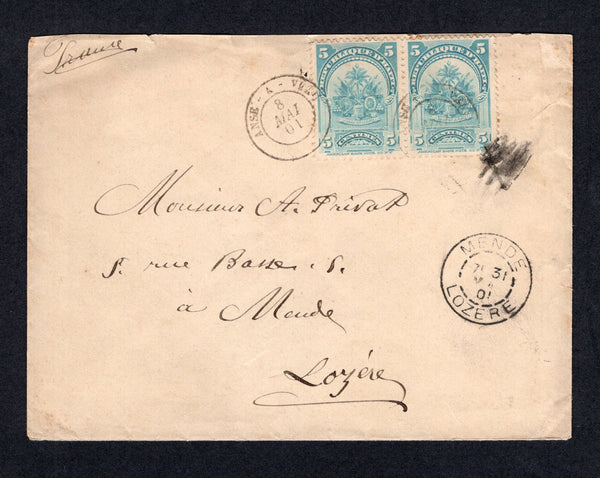 France
5 5 5 5
REPUBLIQUE D'HAITI
5 5 5 5
ANSE - A - VEAU
8
MAI
01
Monsieur A. Privat
5. rue Basse. 5.
à Mende
Lozère
MENDE
31
01
LOZERE